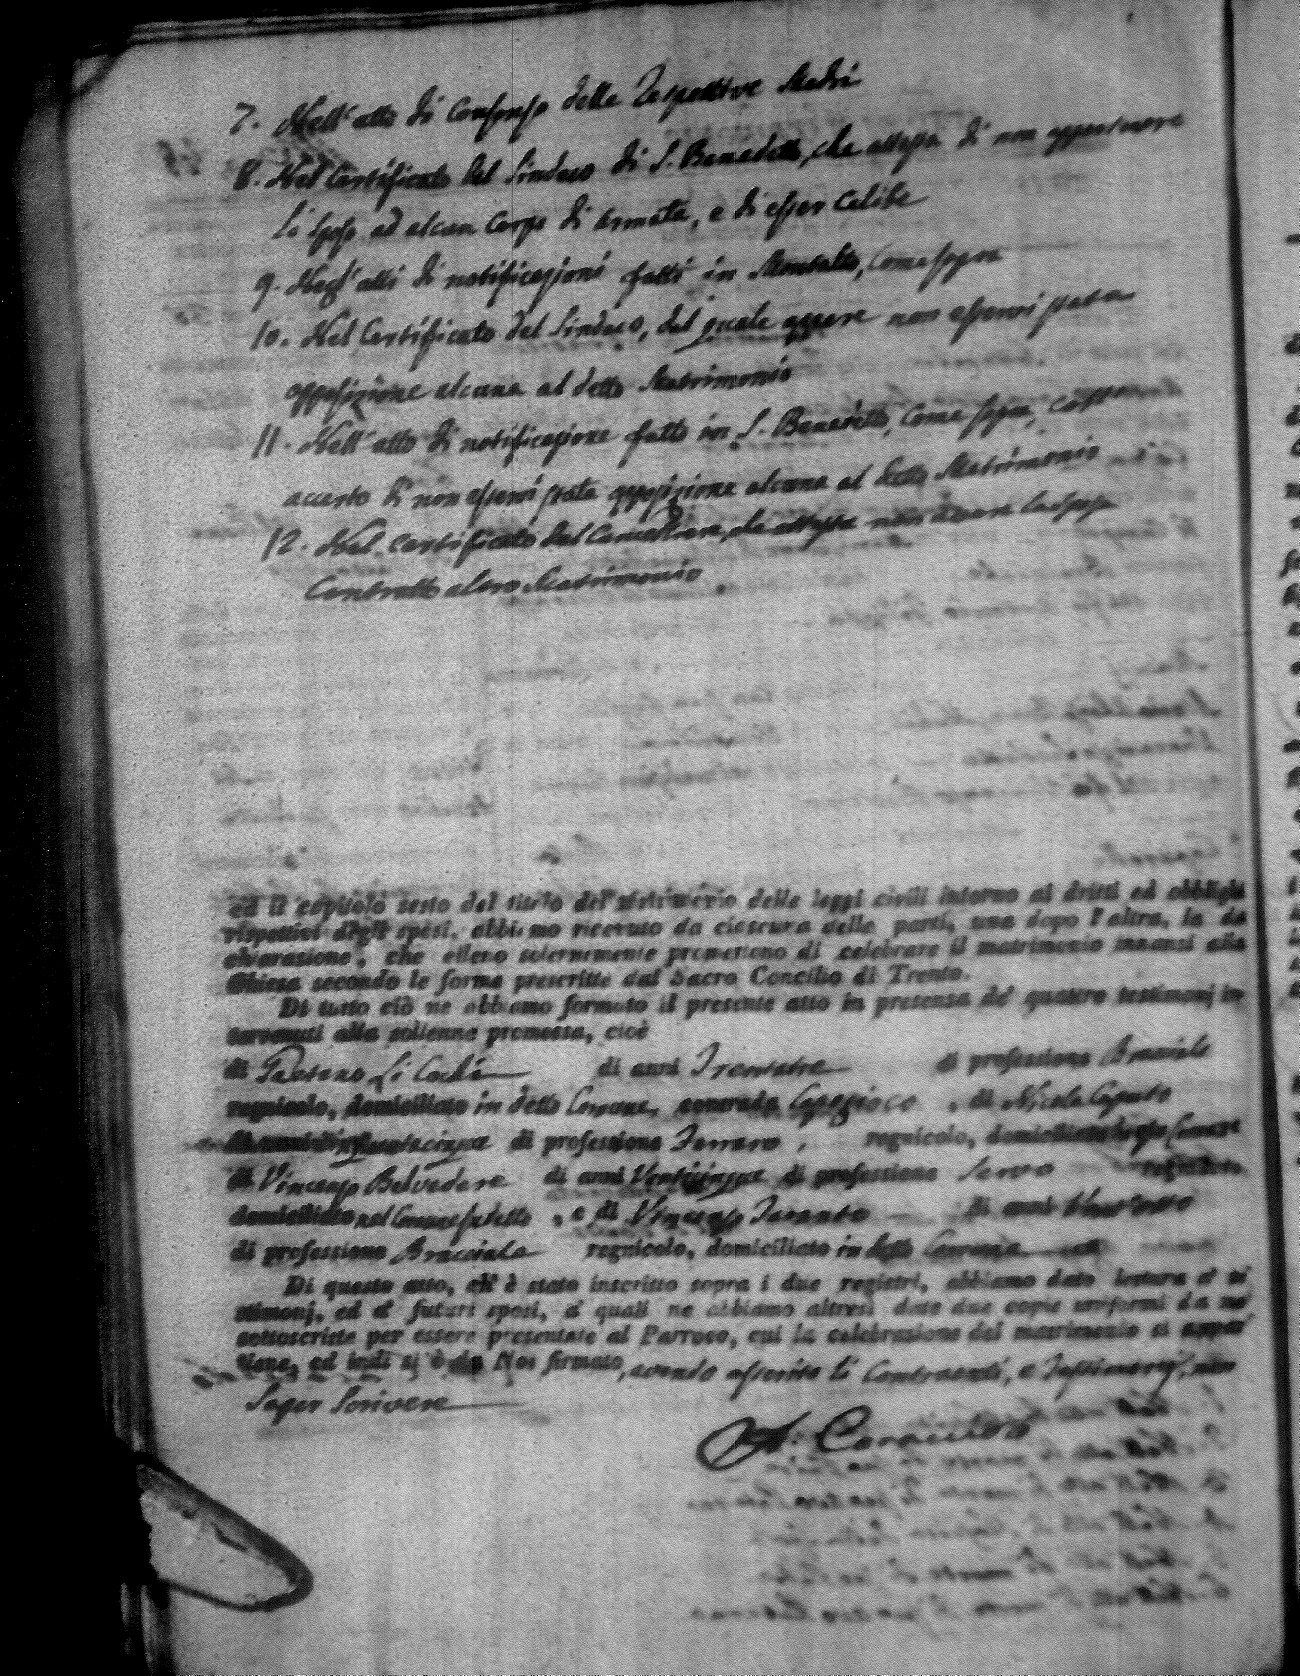 7. Nell'atto di Consenso delle Respettive Madri
8. Nel Certificato del Sindaco di S. Benedetto, che attesta di non appartenere
Lo Sposo ad alcun Corpo di Armata, e di esser Celibe
9. Negl'atti di notificazioni fatti in Montalto, come sopra
10. Nel Certificato del Sindaco, dal quale appare non essersi fatta
opposizione alcuna al detto Matrimonio
11. Nell'atto di notificazione fatto in S. Benedetto, come sopra,
accerto di non essersi fatta opposizione alcuna al detto Matrimonio
12. Nel Certificato del Cancelliere, che attesta non avere la sposa
Contratto altro Matrimonio
ed il capitolo sesto del titolo del matrimonio delle leggi civili intorno ai dritti ed obblighi
rispettivi degli sposi, abbiamo ricevuto da ciascuna delle parti, una dopo l'altra, la di
chiarazione, che elleno solennemente promettono di celebrare il matrimonio innanzi alla
Chiesa secondo le forme prescritte dal Sacro Concilio di Trento.
Di tutto ciò ne abbiamo formato il presente atto in presenza de' quattro testimonj in
tervenuti alla solenne promessa, cioè
di Gaetano di anni Trentatre di professione Bracciale
regnicolo, domiciliato in detto Comune, , di Nicola Caputo
di anni Cinquantacinque di professione Ferraro, regnicolo, domiciliato Comune
di Vincenzo Belvedere di anni Venticinque di professione Servo regnicolo
domiciliato nel Comune suddetto, e di Vincenzo Taranto di anni
di professione Bracciale regnicolo, domiciliato in detto Comune
Di questo atto, ch'è stato inscritto sopra i due registri, abbiamo dato lettura a' te
stimonj, ed a' futuri sposi, a' quali ne abbiamo altresì date due copie uniformi da noi
sottoscritte per essere presentate al Parroco, cui la celebrazione del matrimonio si appar
tiene, ed indi si è da Noi firmato, avendo asserito li Contraenti, e Testimonj, non
Saper Scrivere